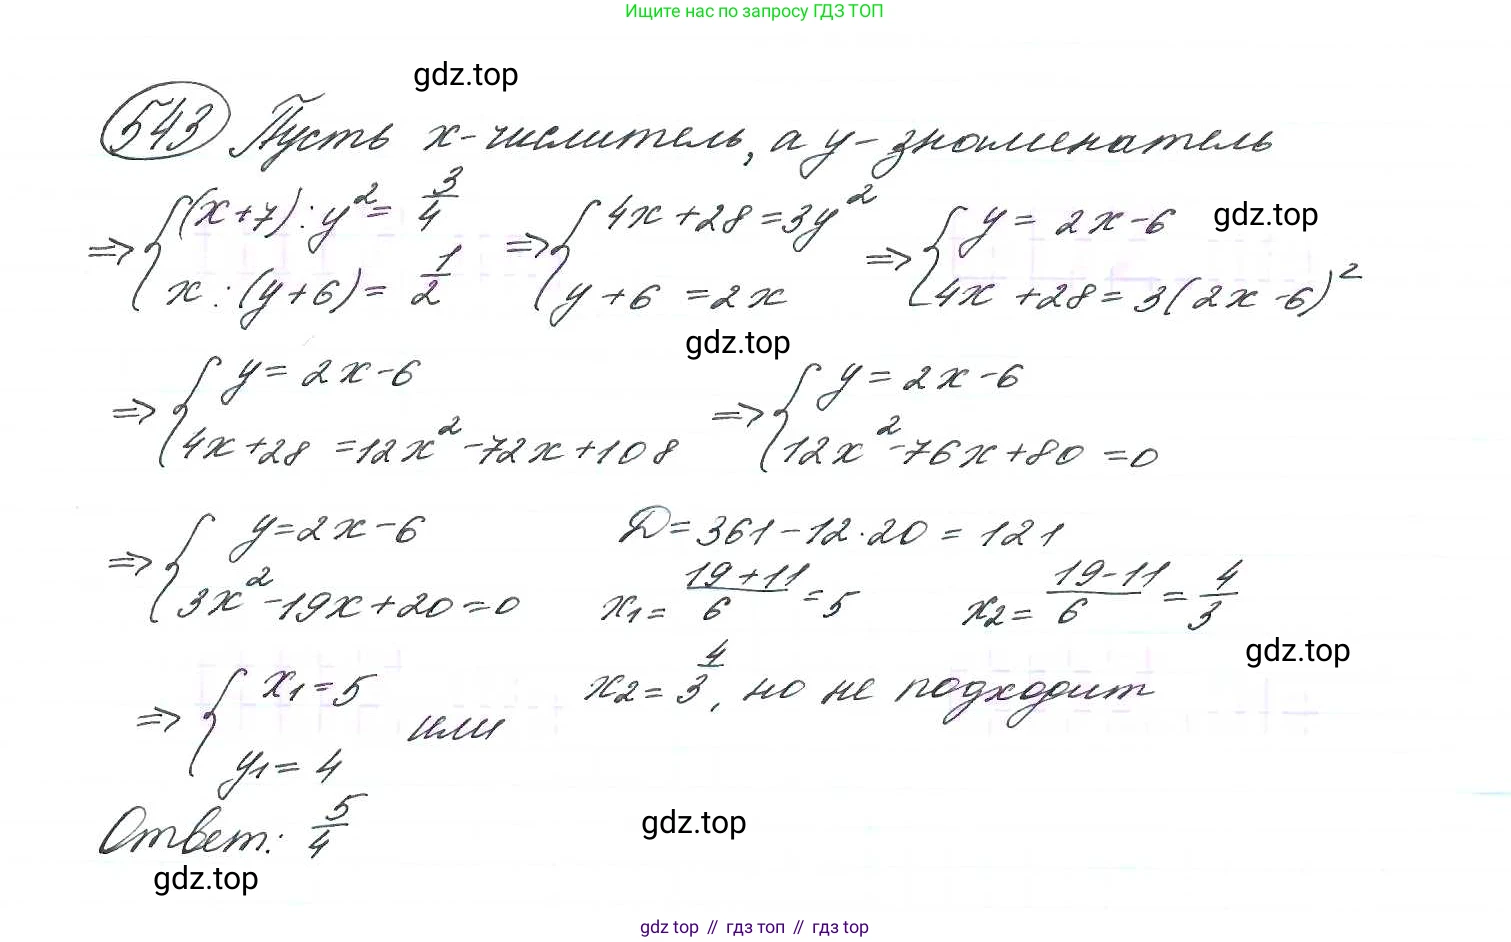 Ищите нас по запросу ГДЗ ТОП
gdz.top
543 Пусть x-числитель, а y-знаменатель
⇒ { (x+7):y² = 3/4 ⇒ { 4x+28=3y² ⇒ { y = 2x-6 gdz.top
x:(y+6) = 1/2 y+6 = 2x 4x+28=3(2x-6)²
gdz.top
⇒ { y = 2x-6 ⇒ { y = 2x-6
4x+28 = 12x²-72x+108 12x²-76x+80=0
⇒ { y=2x-6 D=361-12·20 = 121
3x²-19x+20=0 x₁ = (19+11)/6 = 5 x₂ = (19-11)/6 = 4/3
gdz.top
⇒ { x₁=5 или x₂ = 4/3, но не подходит
y₁=4
Ответ: 5/4 gdz.top
gdz.top
gdz top // гдз топ // гдз top